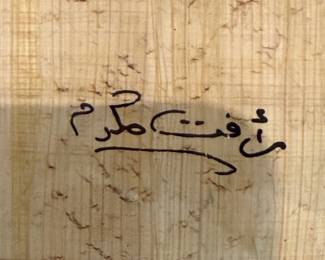 رأفت مكرم